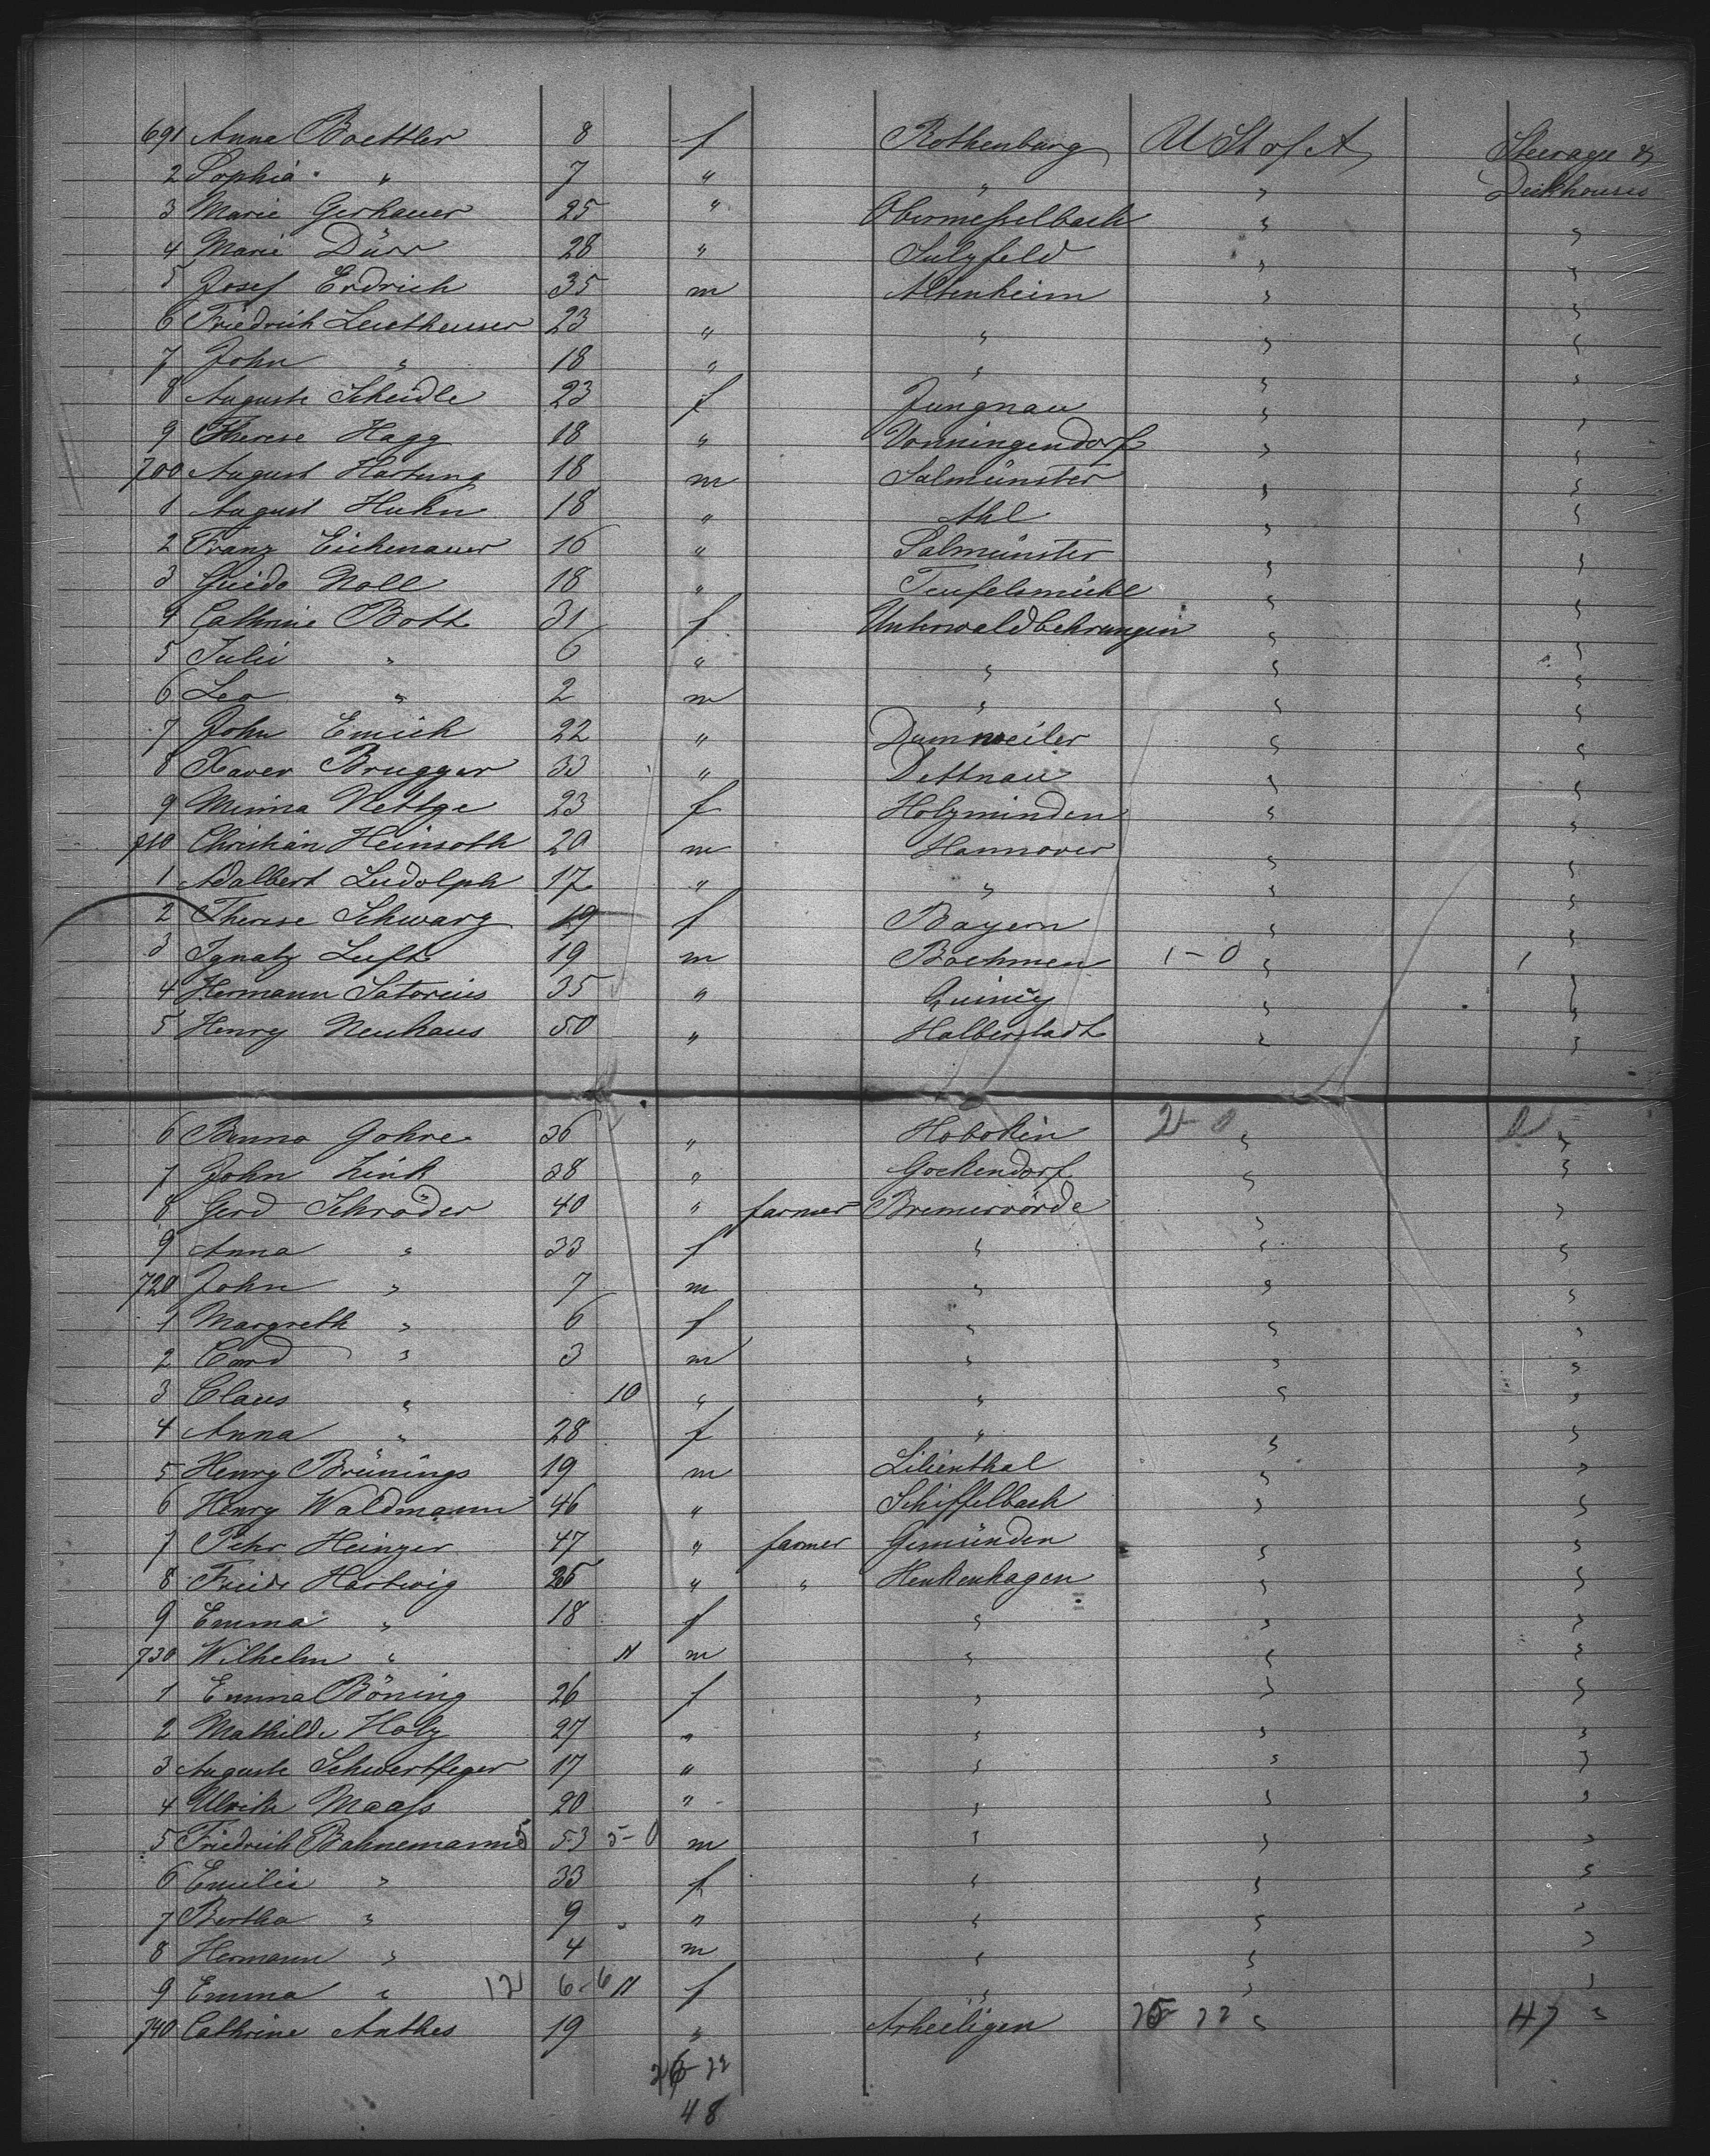 691 Anna Boettler 8 f Rothenburg U St of A Steerage &
2 Sophia " 7 " " " Deckhouses
3 Marie Gerhauer 25 " Obermesselbach " "
4 Marie Dürr 28 " Sulzfeld " "
5 Josef Erdrich 35 m Altenheim " "
6 Friedrich Leutheuser 23 " " " "
7 John " 18 " " " "
8 Auguste Scheidle 23 f Jungnau " "
9 Therese Hagg 18 " Vonningendorf " "
700 August Hartung 18 m Salmünster " "
1 August Huhn 18 " Ahl " "
2 Franz Eichenauer 16 " Salmünster " "
3 Guido Noll 18 " Teufelsmühl " "
4 Cathrine Bott 31 f Unterwaldbehrungen " "
5 Julie " 6 " " " "
6 Leo " 2 m " " "
7 John Emich 22 " Dunnweiler " "
8 Xaver Brugger 33 " Dettnau " "
9 Minna Nettge 23 f Holzminden " "
710 Christian Heinsoth 20 m Hannover " "
1 Adalbert Ludolph 17 " " " "
2 Therese Schwarz 19 f Bayern " "
3 Ignatz Luft 19 m Boehmen 1-0 " 1
4 Hermann Satorius 35 " Quincy " "
5 Henry Neuhaus 50 " Halberstadt " "
6 Benno Gohre 36 " Hoboken 2-0 " "
7 John Link 28 " Gockendorf " "
8 Gerd Schröder 40 " farmer Bremervörde " "
9 Anna " 33 f " " "
720 John " 7 m " " "
1 Margreth " 6 f " " "
2 Cord " 3 m " " "
3 Claus " 10 " " " "
4 Anna " 28 f " " "
5 Henry Brünings 19 m Lilienthal " "
6 Henry Waldmann 46 " Schiffelbach " "
7 Pehr Heinzer 47 " farmer Gemünden " "
8 Friedr Hartwig 25 " " Henkenhagen " "
9 Emma " 18 f " " "
730 Wilhelm " 11 m " " "
1 Emma Böning 26 f " " "
2 Mathilde Holz 27 " " " "
3 Auguste Schwertfeger 17 " " " "
4 Ulrike Maass 20 " " " "
5 Friedrich Bahnemann 5 53 5-0 m " " "
6 Emilie " 33 f " " "
7 Bertha " 9 " " " "
8 Hermann " 4 m " " "
9 Emma " 12 6-6 11 f " " "
740 Cathrine Anthes 19 " Arheiligen 25 22 " 47 "
26-22
48